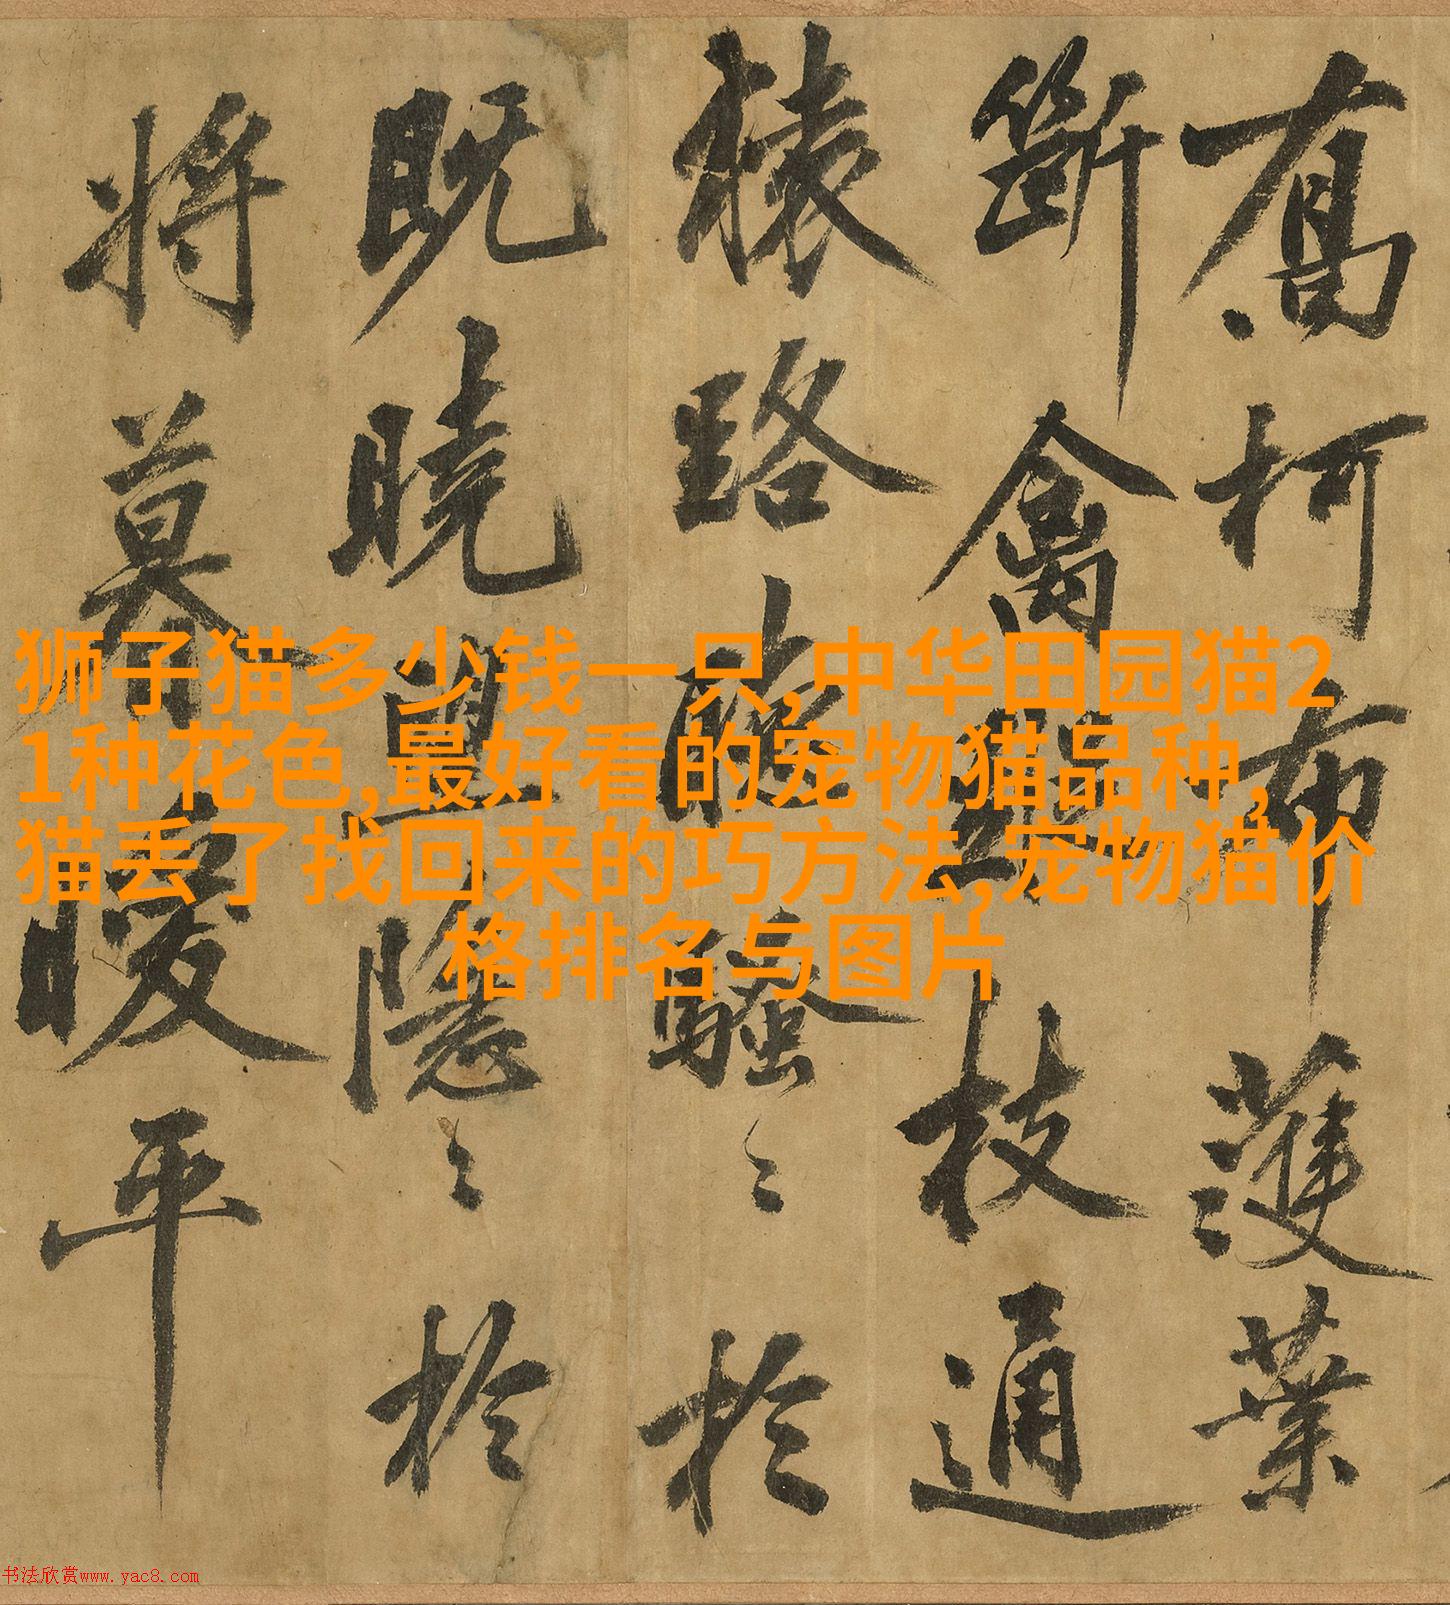 狮子猫多少钱一只,中华田园猫2
1种花色,最好看的宠物猫品种,
猫丢了找回来的巧方法,宠物猫价
格排名与图片
柯布護葉
斷禽枝通
猿路騷〻於
既曉隱〻於
將暮曖平
书法欣赏www.yac8.com